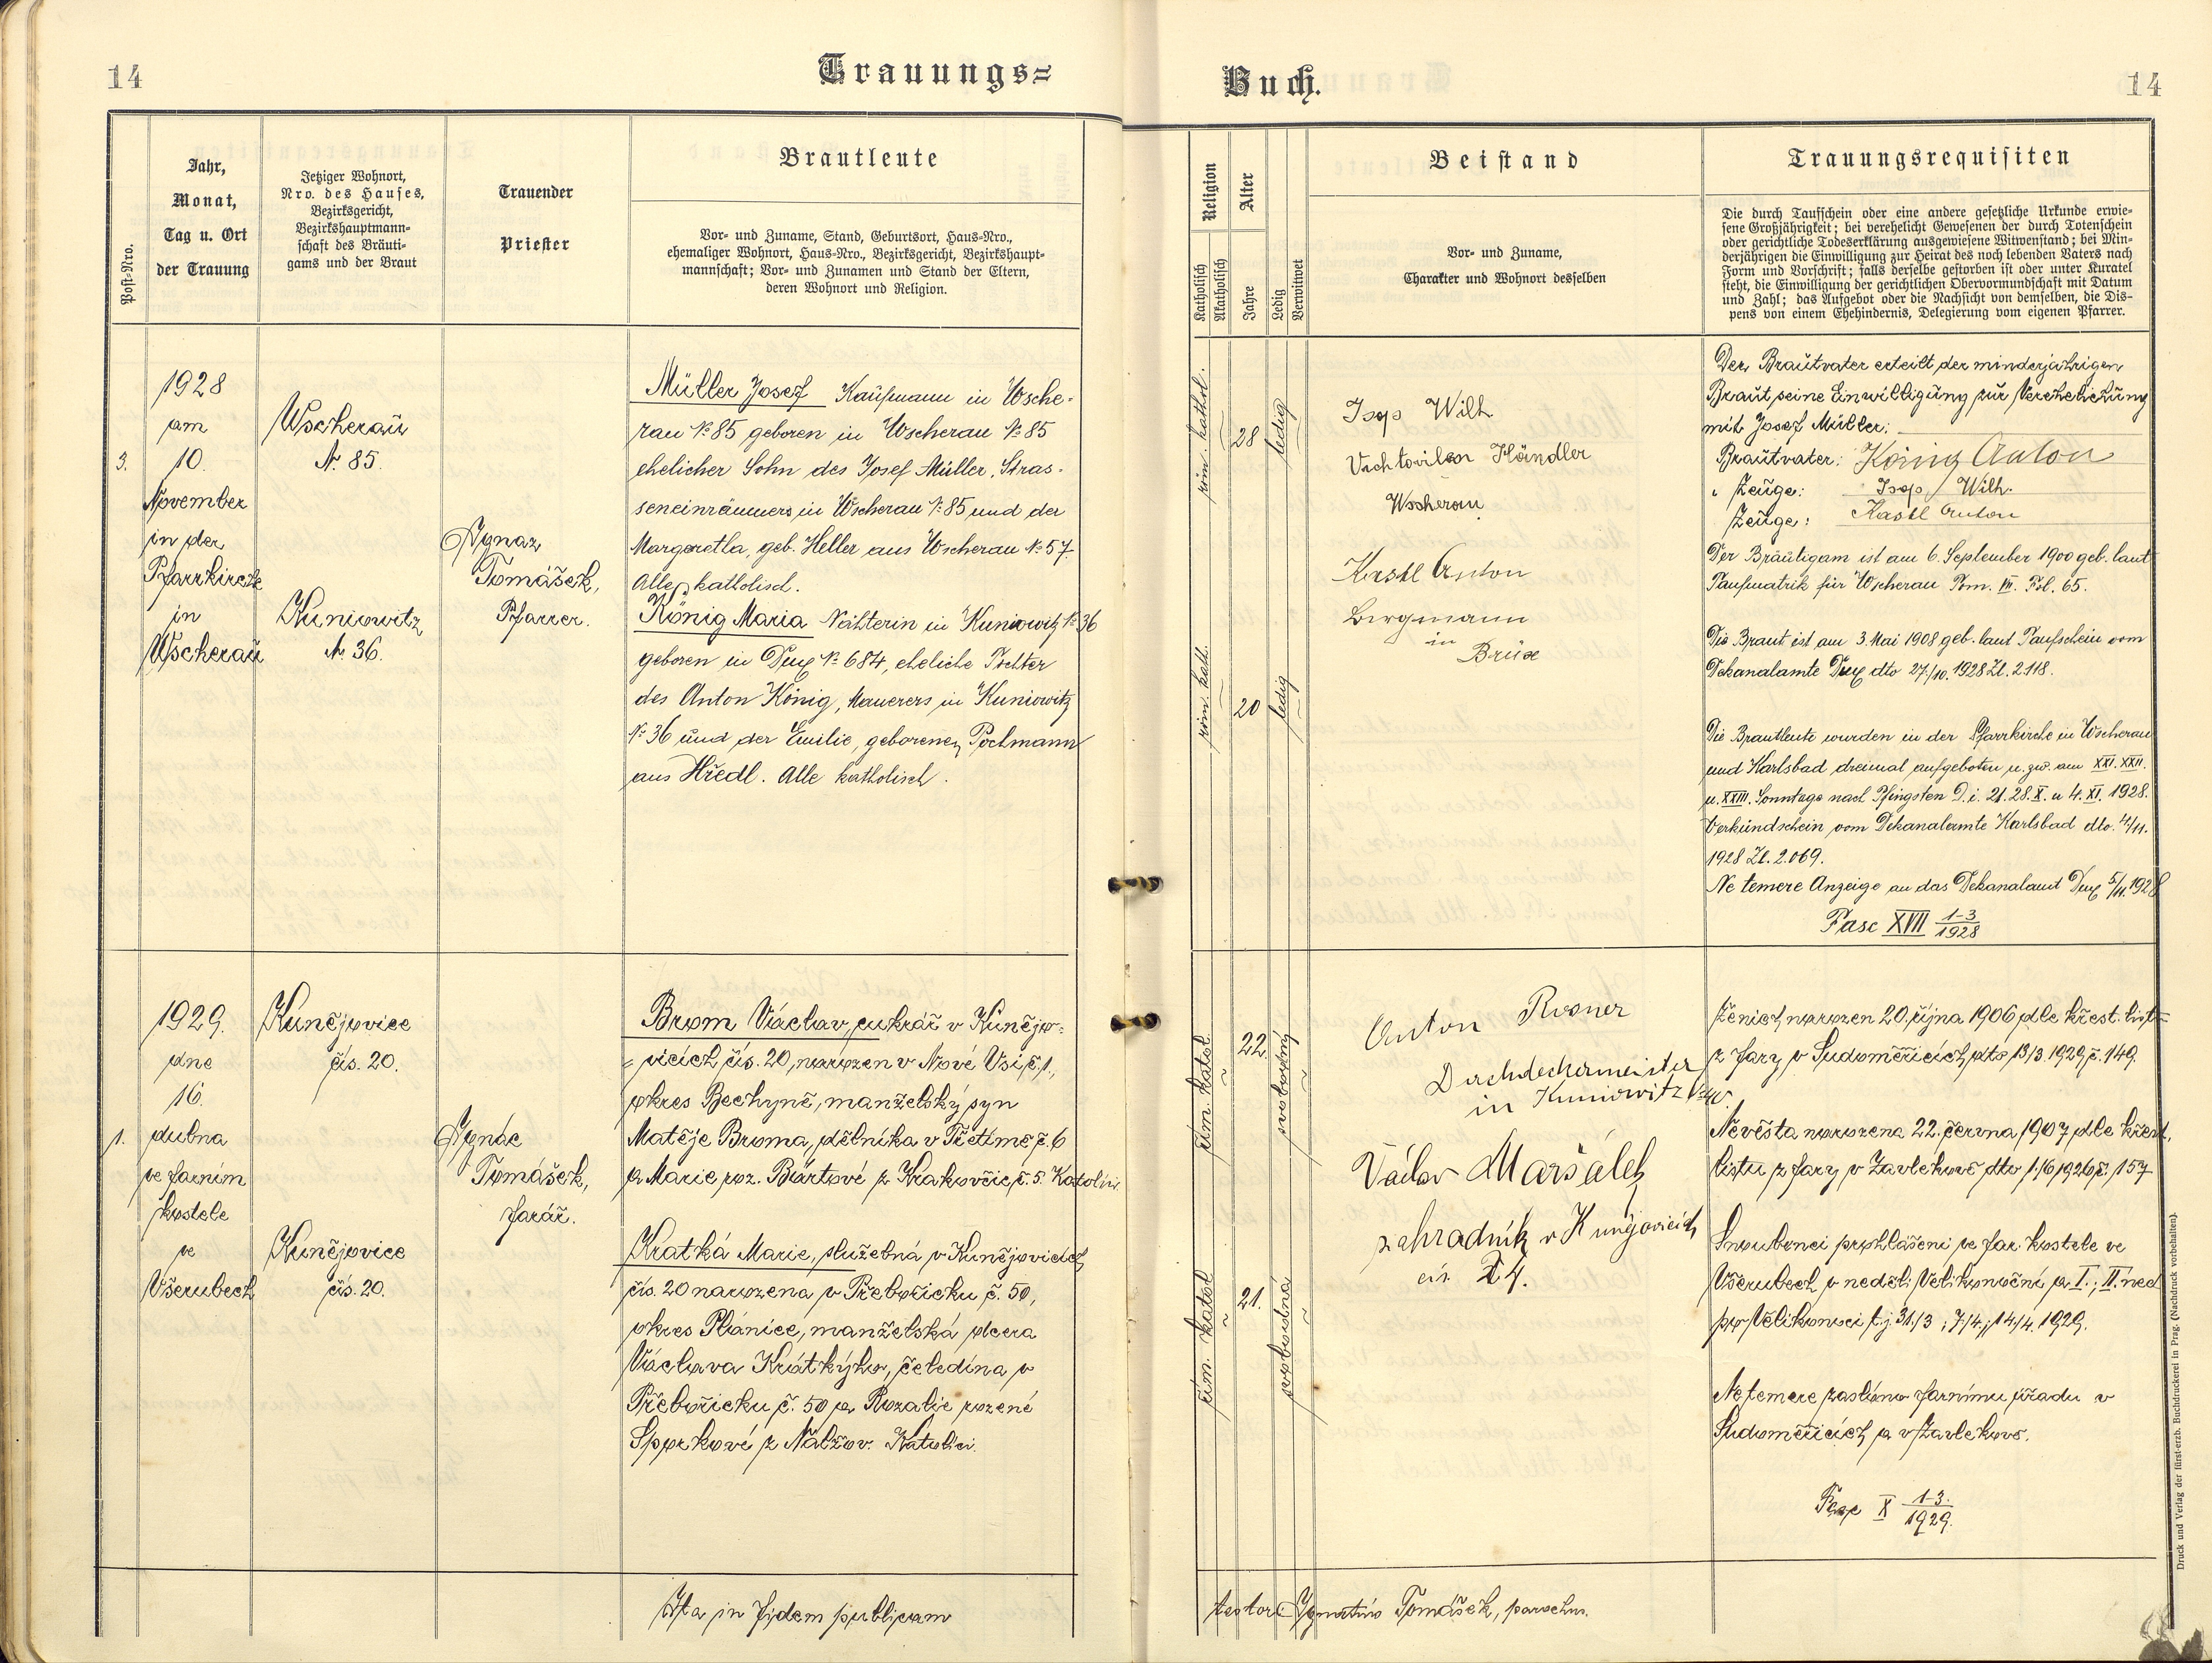 14
Trauungs=
Jahr,
Monat,
Tag u. Ort
der Trauung
Post-Nro.
Jetziger Wohnort,
Nro. des Hauses,
Bezirksgericht,
Bezirkshauptmann-
schaft des Bräuti-
gams und der Braut
Trauender
Priester
Brautleute
Vor- und Zuname, Stand, Geburtsort, Haus-Nro.,
ehemaliger Wohnort, Haus-Nro., Bezirksgericht, Bezirkshaupt-
mannschaft; Vor- und Zunamen und Stand der Eltern,
deren Wohnort und Religion.
3.
1928
am
10.
November
in der
Pfarrkirche
in
Wscherau
Wscherau
N. 85.
Kuniowitz
N. 36.
Ignaz
Tomášek,
Pfarrer.
Müller Josef Kaufmann in Wsche-
rau No 85 geboren in Wscherau No 85
ehelicher Sohn des Josef Müller, Stras-
seneinräumers in Wscherau No 85 und der
Margaretha, geb. Heller aus Wscherau No 57.
Alle katholisch.
König Maria Nähterin in Kuniowitz No 36
geboren in Dux No 684, eheliche Tochter
des Anton König, Maurers in Kuniowitz
No 36 und der Emilie, geborenen Pochmann
aus Hředl. Alle katholisch.
1.
1929.
dne
16.
dubna
ve farním
kostele
ve
Všerubech
Kunějovice
čís. 20.
Kunějovice
čís. 20.
Ignác
Tomášek,
farář.
Brom Václav, cukrář v Kunějo-
vicích čís. 20, narozen v Nové Vsi č. 1,
okres Bechyně, manželský syn
Matěje Broma, dělníka v Třetímě č. 6
a Marie roz. Bártové z Krakovčic č. 5. Katolíci.
Kratká Marie, služebná v Kunějovicích
čís. 20 narozena v Přebořicku č. 50,
okres Plánice, manželská dcera
Václava Krátkýho, čeledína v
Přebořicku č. 50 a Rozalie rozené
Šporkové z Nalžov. Katolíci.
Ita in fidem publicam
Buch.
14
Religion
Katholisch
Akatholisch
Alter
Jahre
Ledig
Verwitwet
Beistand
Vor- und Zuname,
Charakter und Wohnort desselben
Trauungsrequisiten
Die durch Taufschein oder eine andere gesetzliche Urkunde erwie-
sene Großjährigkeit; bei verehelicht Gewesenen der durch Totenschein
oder gerichtliche Todeserklärung ausgewiesene Witwenstand; bei Min-
derjährigen die Einwilligung zur Heirat des noch lebenden Vaters nach
Form und Vorschrift; falls derselbe gestorben ist oder unter Kuratel
steht, die Einwilligung der gerichtlichen Obervormundschaft mit Datum
und Zahl; das Aufgebot oder die Nachsicht von demselben, die Dis-
pens von einem Ehehindernis, Delegierung vom eigenen Pfarrer.
röm. kathol.
28
ledig
röm. kath.
20
ledig
Wilh
Händler
Wscherau
Kastl Anton
Bergmann
in
Brüx
Der Brautvater erteilt der minderjährigen
Braut seine Einwilligung zur Verehelichung
mit Josef Müller:
Brautvater: König Anton
Zeuge: Wilh.
Zeuge: Kastl Anton
Der Bräutigam ist am 6. September 1900 geb. laut
Taufmatrik für Wscherau Tom. III. Fol. 65.
Die Braut ist am 3. Mai 1908 geb. laut Taufschein vom
Dekanalamte Dux dto 27./10. 1928 Zl. 2118.
Die Brautleute wurden in der Pfarrkirche in Wscherau
und Karlsbad dreimal aufgeboten u. zw. am XXI. XXII.
u. XXIII. Sonntage nach Pfingsten D. i. 21. 28. X. u 4. XI. 1928.
Verkündschein vom Dekanalamte Karlsbad dto. 4/11.
1928 Zl. 2.069.
Ne temere Anzeige an das Dekanalamt Dux 5/11. 1928
Fasc XVII 1-3/1928
řím. katol.
22.
svobodný
řím. katol
21.
svobodná
Anton Rosner
Dachdeckermeister
in Kuniowitz
Václav Maršálek
zahradník v Kunějovicích
čís. 24.
Ženich narozen 20. října 1906 dle křest. listu
z fary v Sudoměřicích dto 13/3. 1929 č. 149.
Nevěsta narozena 22. června 1907 dle křest.
listu z fary v Zavlekově dto 1./6 1926 č. 157
Snoubenci prohlášeni ve far. kostele ve
Všerubech v neděli Velikonoční a I.; II. ned
po Velikonoci t. j. 31./3; 7./4.; 14/4. 1929.
Ne temere zasláno farnímu úřadu v
Sudoměřicích a v Zavlekově.
Fasc X 1-3./1929.
testor: Ignatius Tomášek, parochus.
Druck und Verlag der fürst-erzb. Buchdruckerei in Prag. (Nachdruck vorbehalten).